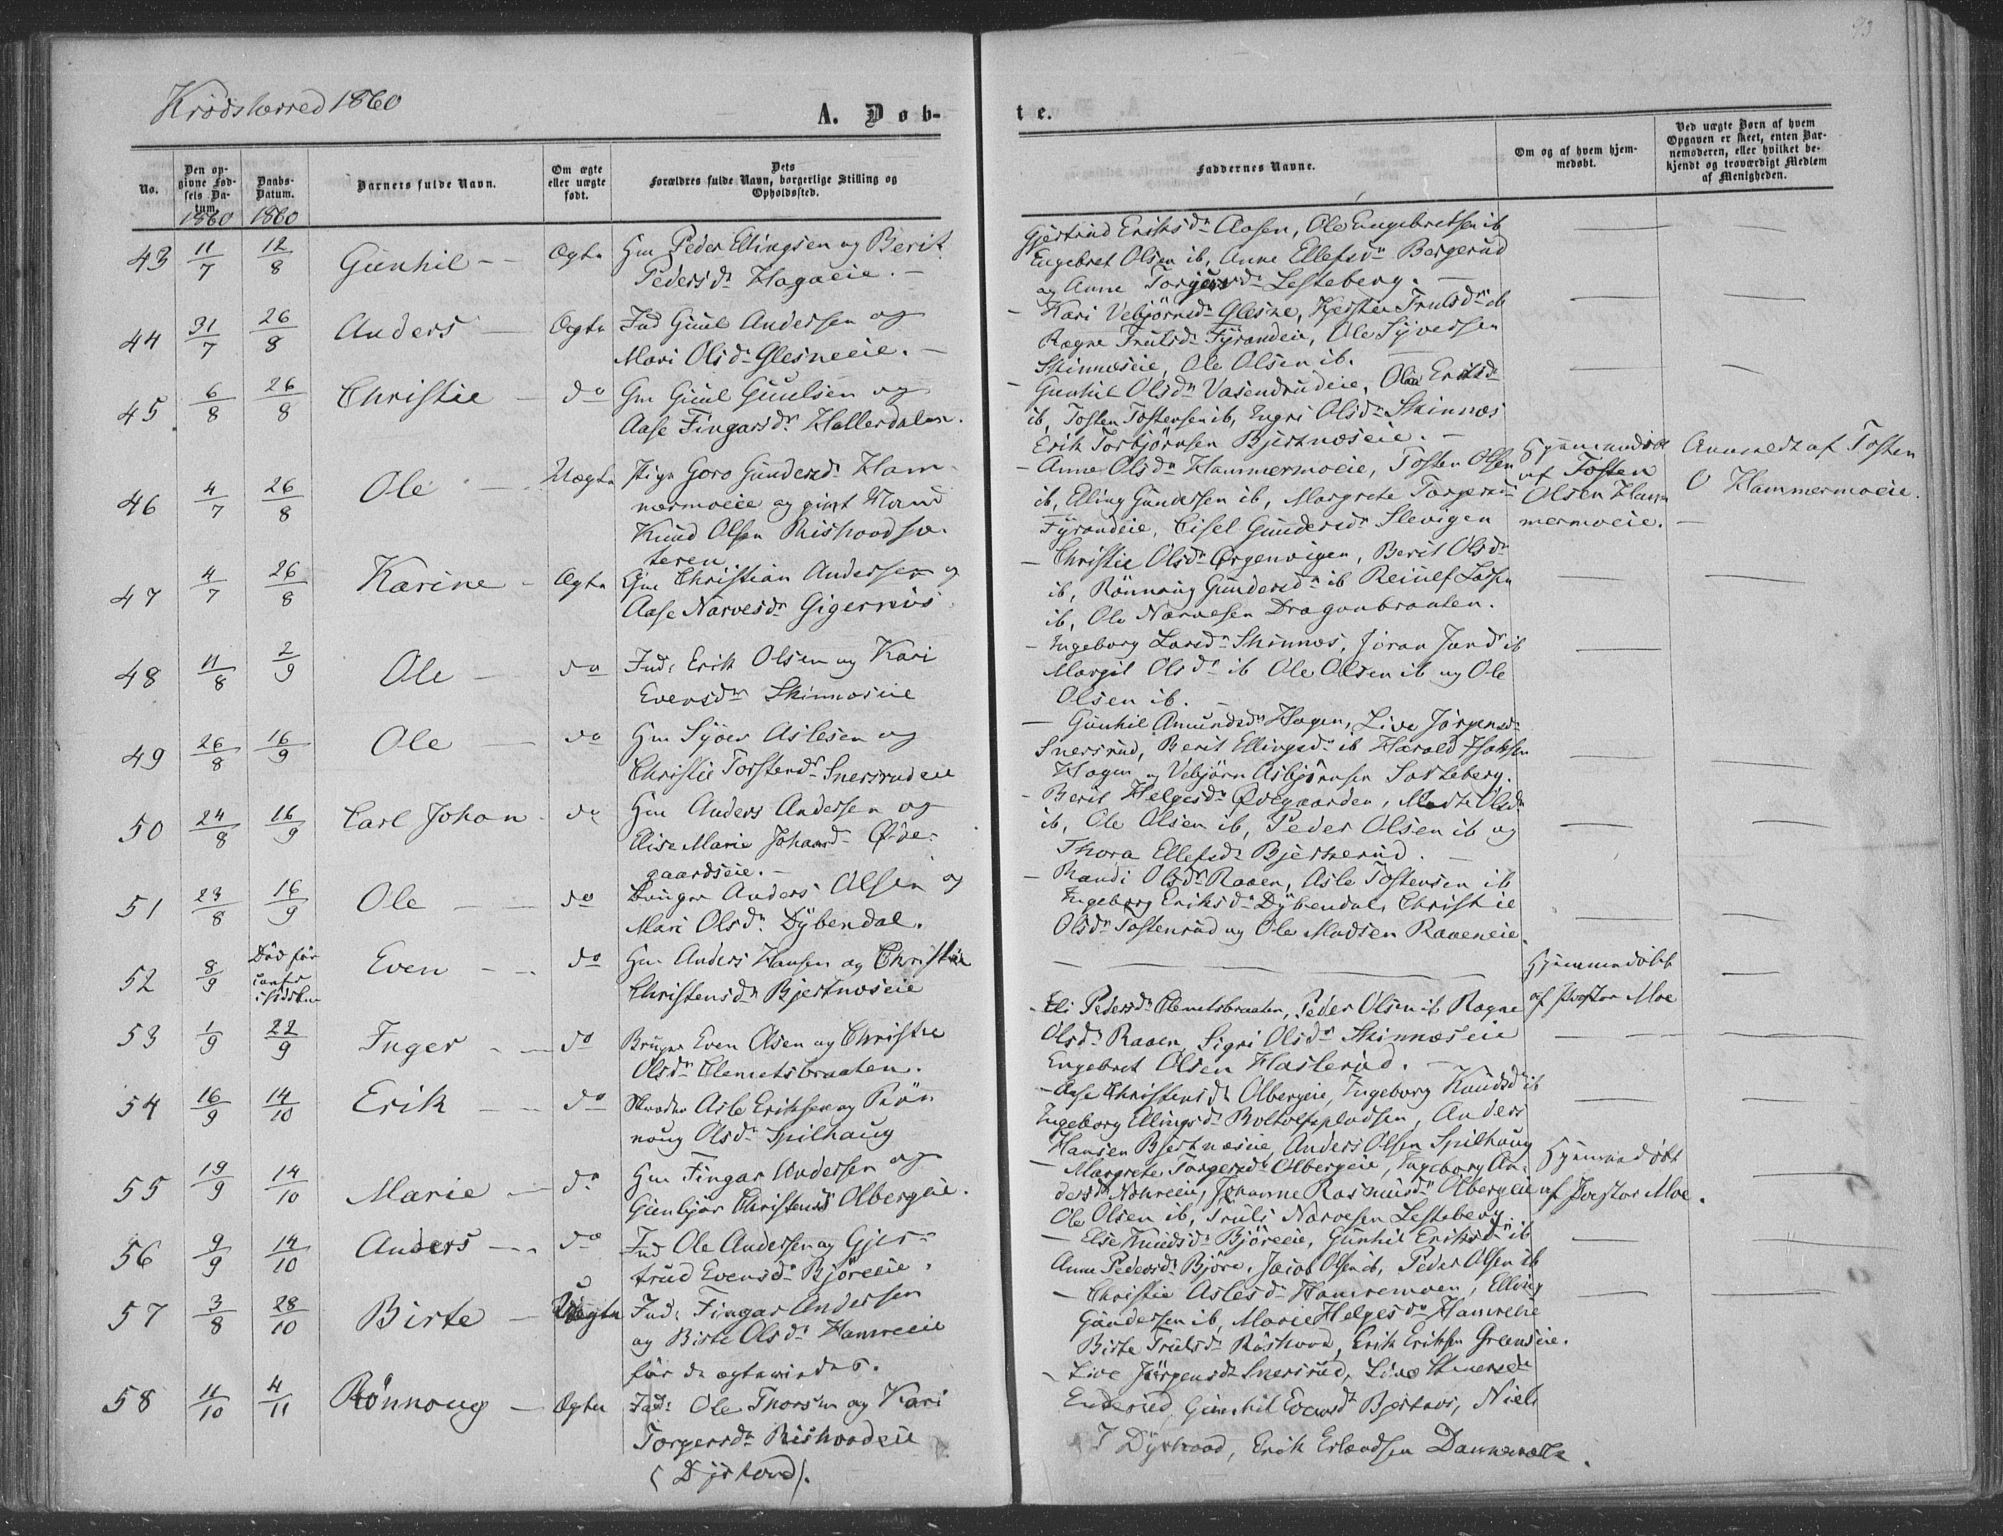 93
Krødsherred 1860
A. Døb-
te.
No.
Den op-
givne Fød-
sels Da-
tum.
1860
Daabs-
Datum.
1860
Barnets fulde Navn.
Om ægte
eller uægte
født.
Dets
Forældres fulde Navn, borgerlige Stilling og
Opholdssted.
Faddernes Navne.
Om og af hvem hjem-
medøbt.
Ved uægte Børn af hvem
Opgaven er skeet, enten Bar-
nemoderen, eller hvilket be-
kjendt og troværdigt Medlem
af Menigheden.
43 11/7 12/8 Gunhil - - Ægte Hm Peder Ellingsen og Berit
Pedersdr Hagaeie. -
Gjertrud Eriksdr Aasen, Ole Engebretsen ib
Engebret Olsen ib, Anne Ellefsdr Bergerud
og Anne Torgersdr Lesteberg. -
44 31/7 26/8 Anders - Ægte Ind Guul Andersen og
Mari Olsdr Glesneeie. -
- Kari Vebjørnsdr Glesne, Kjersten Trulsdr ib
Ragne Trulsdr Fyrandeie, Ole Syversen
Skinnæseie, Ole Olsen ib.
45 6/8 26/8 Christie - do Gm Guul Guulsen og
Aase Fingarsdr Hallerdalen.
- Gunhil Olsdr Vasendrudeie, Olea Eriksdr
ib, Tosten Tostensen ib, Engri Olsdr Skinnæs
Erik Torbjørnsen Bjertnæseie. -
46 4/7 26/8 Ole - Uægte Pige Goro Gundersdr Ham-
mermoeie og givt Mand
Knud Olsen Rishovdsæ-
teren
- Anne Olsdr Hammermoeie, Tosten Olsen
ib, Elling Gundersen ib, Margrete Torgersdr
Fyrandeie, Cisel Gundersdr Slevigen
Hjemmedøbt
af Tosten
Olsen Ham-
mermoeie.
Anmeldt af Tosten
O Hammermoeie.
47 4/7 26/8 Karine - Ægte Gm Christian Andersen og
Aase Narvesdr Gigernæs.
- Christie Olsdr Ørgenvigen, Berit Olsdr
ib, Rønnaug Gundersdr ib Reiulf Larsen
ib, Ole Narvesen Dragonbraaten.
48 11/8 2/9 Ole - do Ind: Erik Olsen og Kari
Evensdr Skinnæseie
- Ingeborg Larsdr Skinnæs, Jøran Jonsdr ib
Margit Olsdr ib Ole Olsen ib og Ole
Olsen ib. -
49 26/8 16/9 Ole - do Hm Syver Aslesen og
Christie Torstensdr Snersrudeie
- Gunhil Amundsdr Hagen, Live Jørgensdr
Snersrud, Berit Ellingsdr ib Harald
Hagen og Vebjørn Asbjørnsen Lesteberg.
50 24/8 16/9 Carl Johan do Hm Anders Andersen og
Elise Marie Johansdr Øde-
gaardseie. -
- Berit Helgesdr Ødegaarden, Marte Olsdr
ib, Ole Olsen ib, Peder Olsen ib og
Thora Ellefsdr Bjerkerud. -
51 23/8 16/9 Ole - - do Bruger Anders Olsen og
Mari Olsdr Dybendal.
- Randi Olsdr Raaen, Asle Tostensen ib
Ingeborg Eriksdr Dybendal, Christie
Olsdr Tostenrud og Ole Madsen Raaeneie.
52 8/9 Død før
Even - - do Hm Anders Hansen og Christie
Christensdr Bjertnæseie
Hjemmedøbt
af Pastor Moe
53 1/9 22/9 Inger - - do Bruger Even Olsen og Christie
Olsdr Clemetsbraaten.
- Eli Pedersdr Clemetsbraaten, Peder Olsen ib Ragne
Olsdr Raaen, Sigri Olsdr Skinnæseie
Engebret Olsen Haslerud. -
54 16/9 14/10 Erik - - do Skræder Asle Eriksen og Røn-
noug Olsdr Spilhaug
- Aase Christensdr Olbergeie, Ingeborg Knudsdr ib
Ingeborg Ellingsdr Boltolfspladsen, Anders
Hansen Bjertnæseie, Anders Olsen Spilhaug
55 19/9 14/10 Marie - do Hm Fingar Andersen og
Gunbjør Christensdr Olbergeie.
- Margrete Torgersdr Olbergeie, Ingeborg An-
dersdr Nohreeie, Johanne Rasmusdr Olbergeie
Ole Olsen ib, Truls Narvesen Lesteberg.
Hjemmedøbt
af Pastor Moe.
56 9/9 14/10 Anders - - do Ind Ole Andersen og Gjer-
trud Evensdr Bjøreeie.
- Else Knudsdr Bjøreeie, Gunhil Eriksdr ib
Anne Pedersdr Bjøre, Jacob Olsen ib, Peder Olsen ib
57 3/8 28/10 Birte - Uægte Ind: Fingar Andersen
og Birte Olsdr Hamreeie
før de ægteviedes.
- Christie Aslesdr Hamremoen, Elling
Gundersen ib, Marie Helgesdr Hamreeie
Birte Trulsdr Rishovd, Erik Eriksen Grenseie.
58 11/10 4/11 Rønnoug - Ægte Ind: Ole Thorsen og Kari
Torgersdr Rishovdeie
(Dyshovd).
- Live Jørgensdr Snersrud, Live Stenersdr
Enderud, Gunhil Evensdr Bjertnæs, Niels
I Dyshovd, Erik Erlandsen Dannevælle.